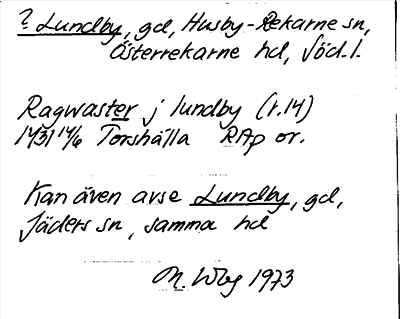 ? Lundby, gd, Husby-Rekarne sn,
Österrekarne hd, Söd.l.
Ragwaster j lundby (r.14)
1431 14/6 Torshälla RAp or.
Kan även avse Lundby, gd,
Jäders sn, samma hd
M. Wbg 1973